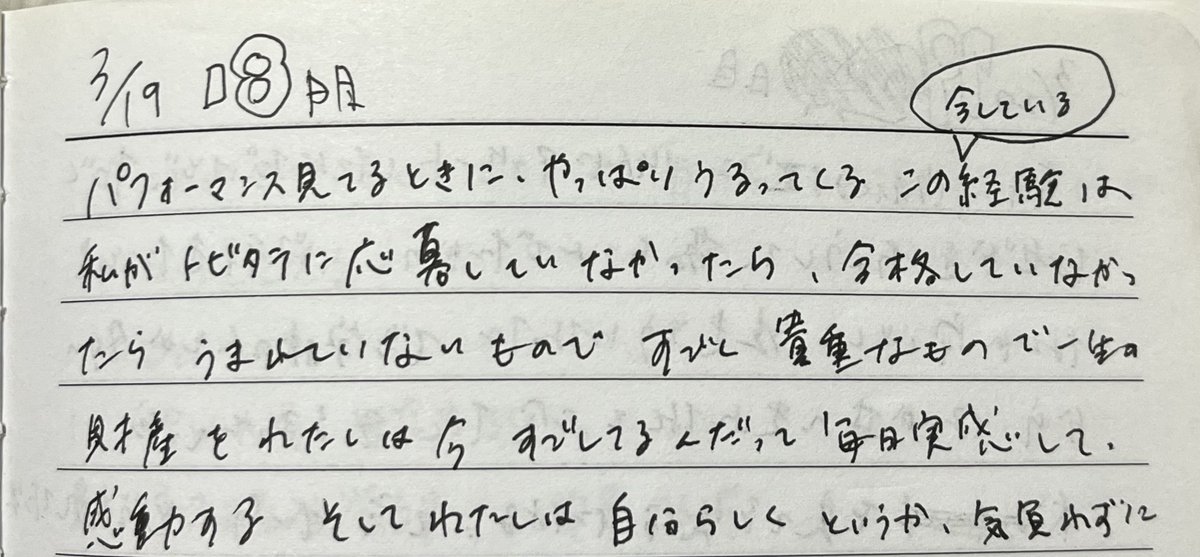 3/19 日⑧ 明
今している
パフォーマンス見てるときに、やっぱりうるってくる この経験は
私がトビタテに応募していなかったら、合格していなかっ
たら うまれていないもので すごく貴重なもので一生の
財産をわたしは今 すごしてるんだって毎日実感して、
感動する そしてわたしは自分らしくというか、気負わずに